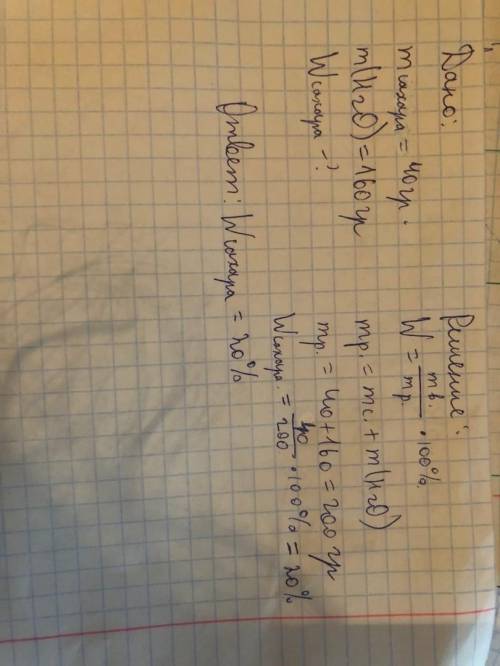 Дано:
m сахара = 40 гр.
m(H2O) = 160 гр
W сахара - ?
Решение:
W = mв. / mр. · 100%.
mр. = mс. + m(H2O)
mр. = 40 + 160 = 200 гр
W сахара. = 40 / 200 · 100% = 20%
Ответ: W сахара = 20%